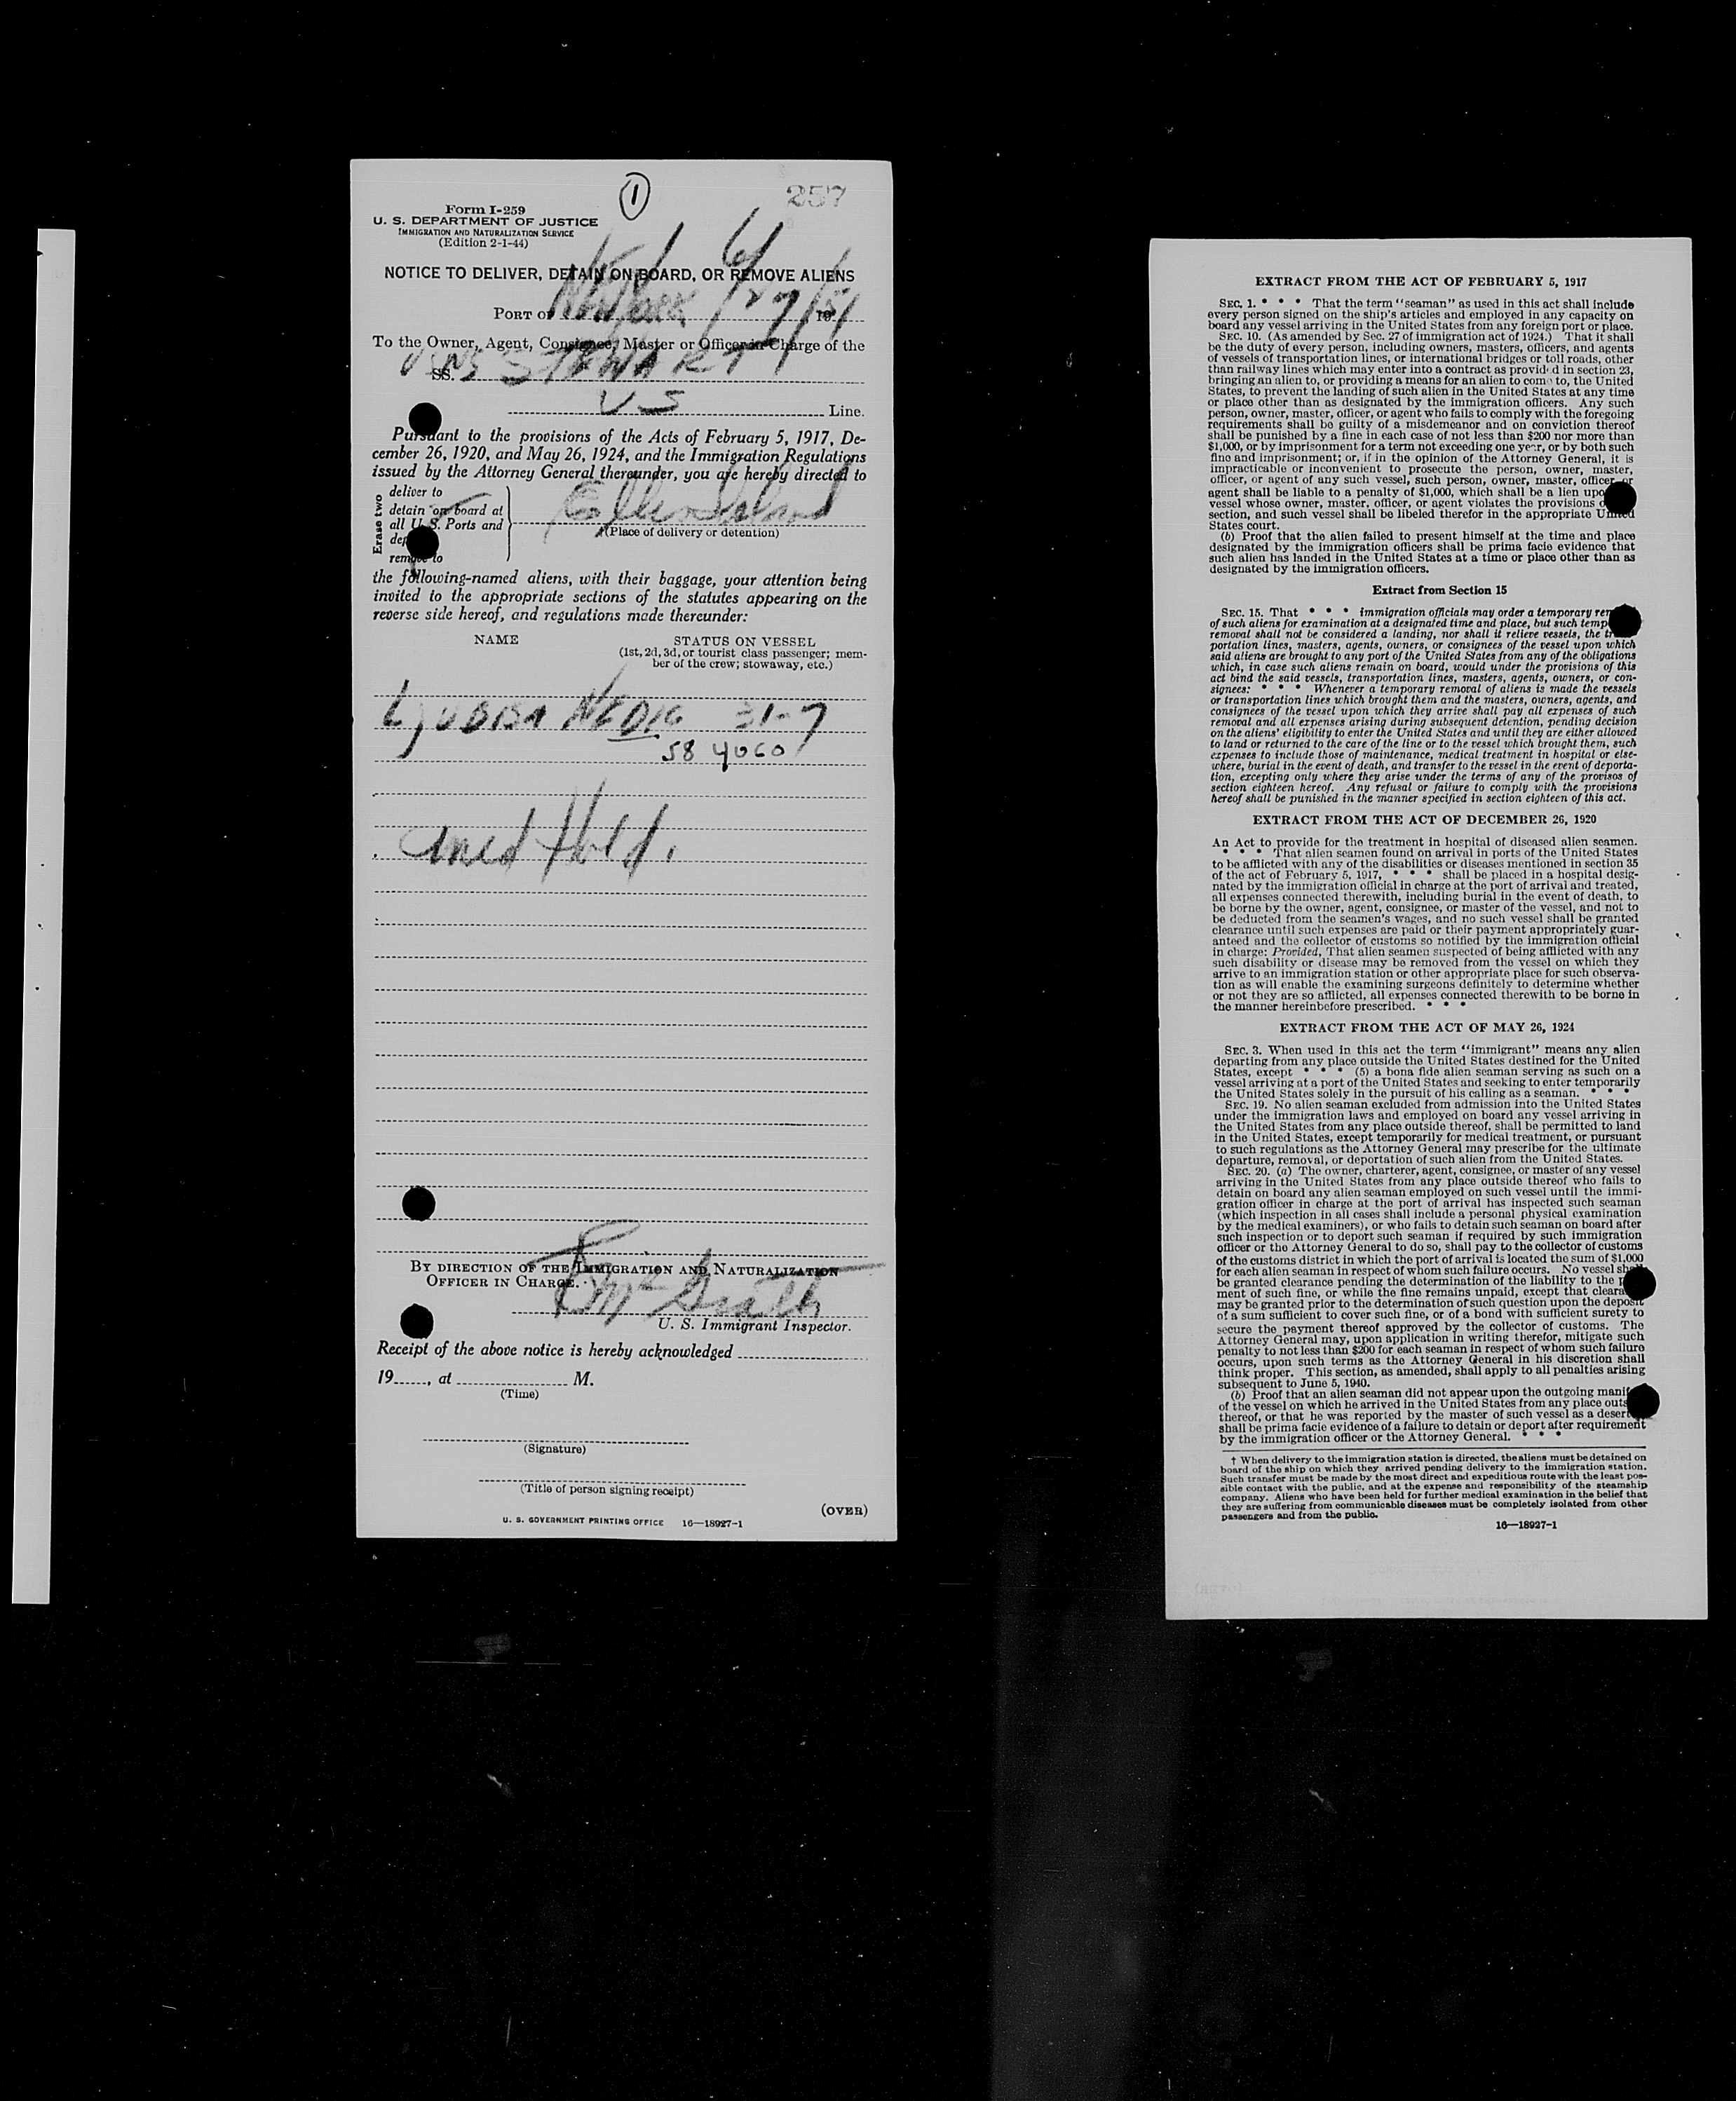 ①
257
Form I-259
U. S. DEPARTMENT OF JUSTICE
IMMIGRATION AND NATURALIZATION SERVICE
(Edition 2-1-44)
NOTICE TO DELIVER, DETAIN ON BOARD, OR REMOVE ALIENS
PORT OF New York 6/27/51
To the Owner, Agent, Consignee, Master or Officer in Charge of the
SS. USNS STEWART
US Line.
Pursuant to the provisions of the Acts of February 5, 1917, De-
cember 26, 1920, and May 26, 1924, and the Immigration Regulations
issued by the Attorney General thereunder, you are hereby directed to
Erase two
deliver to
detain on board at
all U. S. Ports and
dep
remove to
Ellis Island
(Place of delivery or detention)
the following-named aliens, with their baggage, your attention being
invited to the appropriate sections of the statutes appearing on the
reverse side hereof, and regulations made thereunder:
NAME STATUS ON VESSEL
(1st, 2d, 3d, or tourist class passenger; mem-
ber of the crew; stowaway, etc.)
LJUBISA NEDIC 31-7
58 YUGO
Hold.
BY DIRECTION OF THE IMMIGRATION AND NATURALIZATION
OFFICER IN CHARGE.
McGrath
U. S. Immigrant Inspector.
Receipt of the above notice is hereby acknowledged
19......, at M.
(Time)
(Signature)
(Title of person signing receipt)
(OVER)
U. S. GOVERNMENT PRINTING OFFICE 16—18927-1
EXTRACT FROM THE ACT OF FEBRUARY 5, 1917
SEC. 1. * * * That the term "seaman" as used in this act shall include
every person signed on the ship's articles and employed in any capacity on
board any vessel arriving in the United States from any foreign port or place.
SEC. 10. (As amended by Sec. 27 of immigration act of 1924.) That it shall
be the duty of every person, including owners, masters, officers, and agents
of vessels of transportation lines, or international bridges or toll roads, other
than railway lines which may enter into a contract as provided in section 23,
bringing an alien to, or providing a means for an alien to come to, the United
States, to prevent the landing of such alien in the United States at any time
or place other than as designated by the immigration officers. Any such
person, owner, master, officer, or agent who fails to comply with the foregoing
requirements shall be guilty of a misdemeanor and on conviction thereof
shall be punished by a fine in each case of not less than $200 nor more than
$1,000, or by imprisonment for a term not exceeding one year, or by both such
fine and imprisonment; or, if in the opinion of the Attorney General, it is
impracticable or inconvenient to prosecute the person, owner, master,
officer, or agent of any such vessel, such person, owner, master, officer or
agent shall be liable to a penalty of $1,000, which shall be a lien upo
vessel whose owner, master, officer, or agent violates the provisions o
section, and such vessel shall be libeled therefor in the appropriate United
States court.
(b) Proof that the alien failed to present himself at the time and place
designated by the immigration officers shall be prima facie evidence that
such alien has landed in the United States at a time or place other than as
designated by the immigration officers.
Extract from Section 15
SEC. 15. That * * * immigration officials may order a temporary rem
of such aliens for examination at a designated time and place, but such temp
removal shall not be considered a landing, nor shall it relieve vessels, the trans-
portation lines, masters, agents, owners, or consignees of the vessel upon which
said aliens are brought to any port of the United States from any of the obligations
which, in case such aliens remain on board, would under the provisions of this
act bind the said vessels, transportation lines, masters, agents, owners, or con-
signees: * * * Whenever a temporary removal of aliens is made the vessels
or transportation lines which brought them and the masters, owners, agents, and
consignees of the vessel upon which they arrive shall pay all expenses of such
removal and all expenses arising during subsequent detention, pending decision
on the aliens' eligibility to enter the United States and until they are either allowed
to land or returned to the care of the line or to the vessel which brought them, such
expenses to include those of maintenance, medical treatment in hospital or else-
where, burial in the event of death, and transfer to the vessel in the event of deporta-
tion, excepting only where they arise under the terms of any of the provisos of
section eighteen hereof. Any refusal or failure to comply with the provisions
hereof shall be punished in the manner specified in section eighteen of this act.
EXTRACT FROM THE ACT OF DECEMBER 26, 1920
An Act to provide for the treatment in hospital of diseased alien seamen.
* * * That alien seamen found on arrival in ports of the United States
to be afflicted with any of the disabilities or diseases mentioned in section 35
of the act of February 5, 1917, * * * shall be placed in a hospital desig-
nated by the immigration official in charge at the port of arrival and treated,
all expenses connected therewith, including burial in the event of death, to
be borne by the owner, agent, consignee, or master of the vessel, and not to
be deducted from the seamen's wages, and no such vessel shall be granted
clearance until such expenses are paid or their payment appropriately guar-
anteed and the collector of customs so notified by the immigration official
in charge: Provided, That alien seamen suspected of being afflicted with any
such disability or disease may be removed from the vessel on which they
arrive to an immigration station or other appropriate place for such observa-
tion as will enable the examining surgeons definitely to determine whether
or not they are so afflicted, all expenses connected therewith to be borne in
the manner hereinbefore prescribed. * * *
EXTRACT FROM THE ACT OF MAY 26, 1924
SEC. 3. When used in this act the term "immigrant" means any alien
departing from any place outside the United States destined for the United
States, except * * * (5) a bona fide alien seaman serving as such on a
vessel arriving at a port of the United States and seeking to enter temporarily
the United States solely in the pursuit of his calling as a seaman. * * *
SEC. 19. No alien seaman excluded from admission into the United States
under the immigration laws and employed on board any vessel arriving in
the United States from any place outside thereof, shall be permitted to land
in the United States, except temporarily for medical treatment, or pursuant
to such regulations as the Attorney General may prescribe for the ultimate
departure, removal, or deportation of such alien from the United States.
SEC. 20. (a) The owner, charterer, agent, consignee, or master of any vessel
arriving in the United States from any place outside thereof who fails to
detain on board any alien seaman employed on such vessel until the immi-
gration officer in charge at the port of arrival has inspected such seaman
(which inspection in all cases shall include a personal physical examination
by the medical examiners), or who fails to detain such seaman on board after
such inspection or to deport such seaman if required by such immigration
officer or the Attorney General to do so, shall pay to the collector of customs
of the customs district in which the port of arrival is located the sum of $1,000
for each alien seaman in respect of whom such failure occurs. No vessel shall
be granted clearance pending the determination of the liability to the p
ment of such fine, or while the fine remains unpaid, except that cleara
may be granted prior to the determination of such question upon the deposit
of a sum sufficient to cover such fine, or of a bond with sufficient surety to
secure the payment thereof approved by the collector of customs. The
Attorney General may, upon application in writing therefor, mitigate such
penalty to not less than $200 for each seaman in respect of whom such failure
occurs, upon such terms as the Attorney General in his discretion shall
think proper. This section, as amended, shall apply to all penalties arising
subsequent to June 5, 1940.
(b) Proof that an alien seaman did not appear upon the outgoing manif
of the vessel on which he arrived in the United States from any place outs
thereof, or that he was reported by the master of such vessel as a desert
shall be prima facie evidence of a failure to detain or deport after requirement
by the immigration officer or the Attorney General. * * *
† When delivery to the immigration station is directed, the aliens must be detained on
board of the ship on which they arrived pending delivery to the immigration station.
Such transfer must be made by the most direct and expeditious route with the least pos-
sible contact with the public, and at the expense and responsibility of the steamship
company. Aliens who have been held for further medical examination in the belief that
they are suffering from communicable diseases must be completely isolated from other
passengers and from the public.
16—18927-1